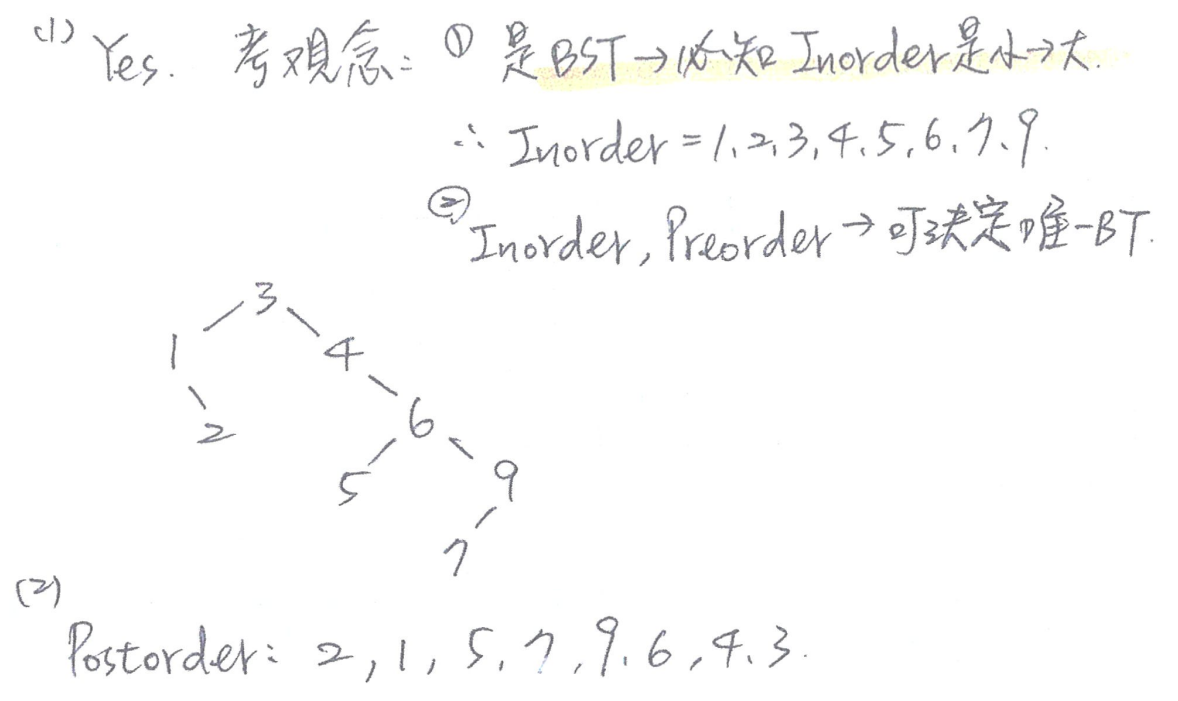 (1) Yes. 考观念: ① 是BST→必知 Inorder是小→大.
∴ Inorder = 1, 2, 3, 4, 5, 6, 7, 9.
② Inorder, Preorder → 可决定唯一BT.
3
1 4
2 6
5 9
7
(2)
Postorder: 2, 1, 5, 7, 9, 6, 4, 3.